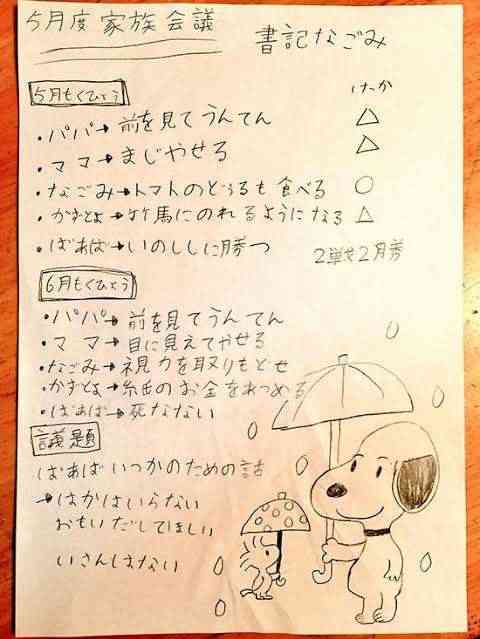 5月度 家族会議
書記なごみ
5月もくひょう けっか
・パパ→前を見てうんてん △
・ママ→まじやせる △
・なごみ→トマトのどぅるも食べる ○
・かずとよ→竹馬にのれるようになる △
・ばあば→いのししに勝つ 2戦2勝
6月もくひょう
・パパ→前を見てうんてん
・ママ→目に見えてやせる
・なごみ→視力を取りもどせ
・かずとよ→紙のお金をあつめる
・ばあば→死なない
議題
ばあばいつかのための話
→はかはいらない
おもいだしてほしい
いさんはない